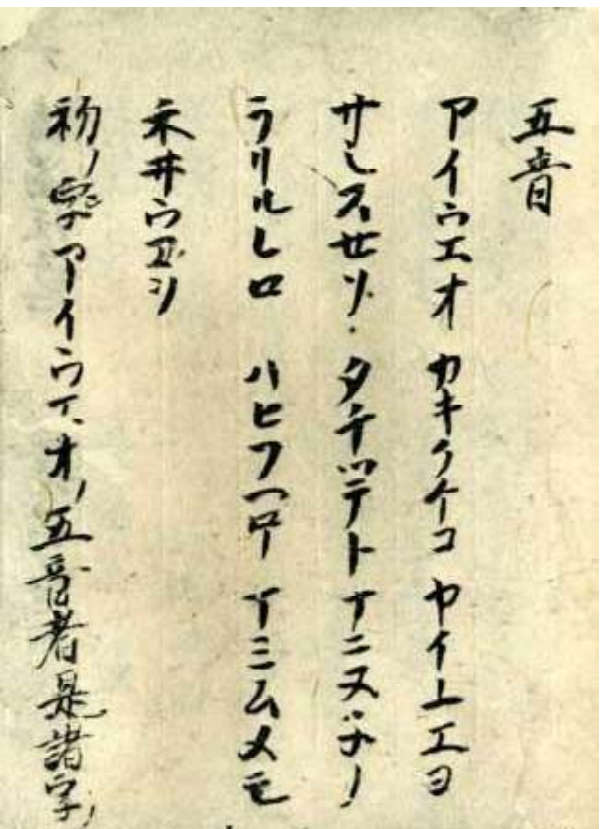 五音
アイウエオ カキクケコ ヤイユエヨ
サシスセソ タチツテト ナニヌネノ
ラリルレロ ハヒフヘホ マミムメモ
ワヰウヱヲ
初ノ字アイウエオノ五音者是諸字ノ